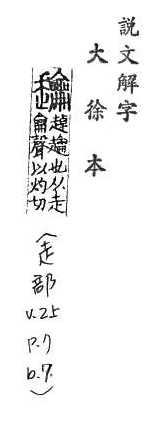 説文解字
大徐本
䟑 趠䟑也从走
龠聲以灼切
(走部 V.2上 P.7 b.7.)